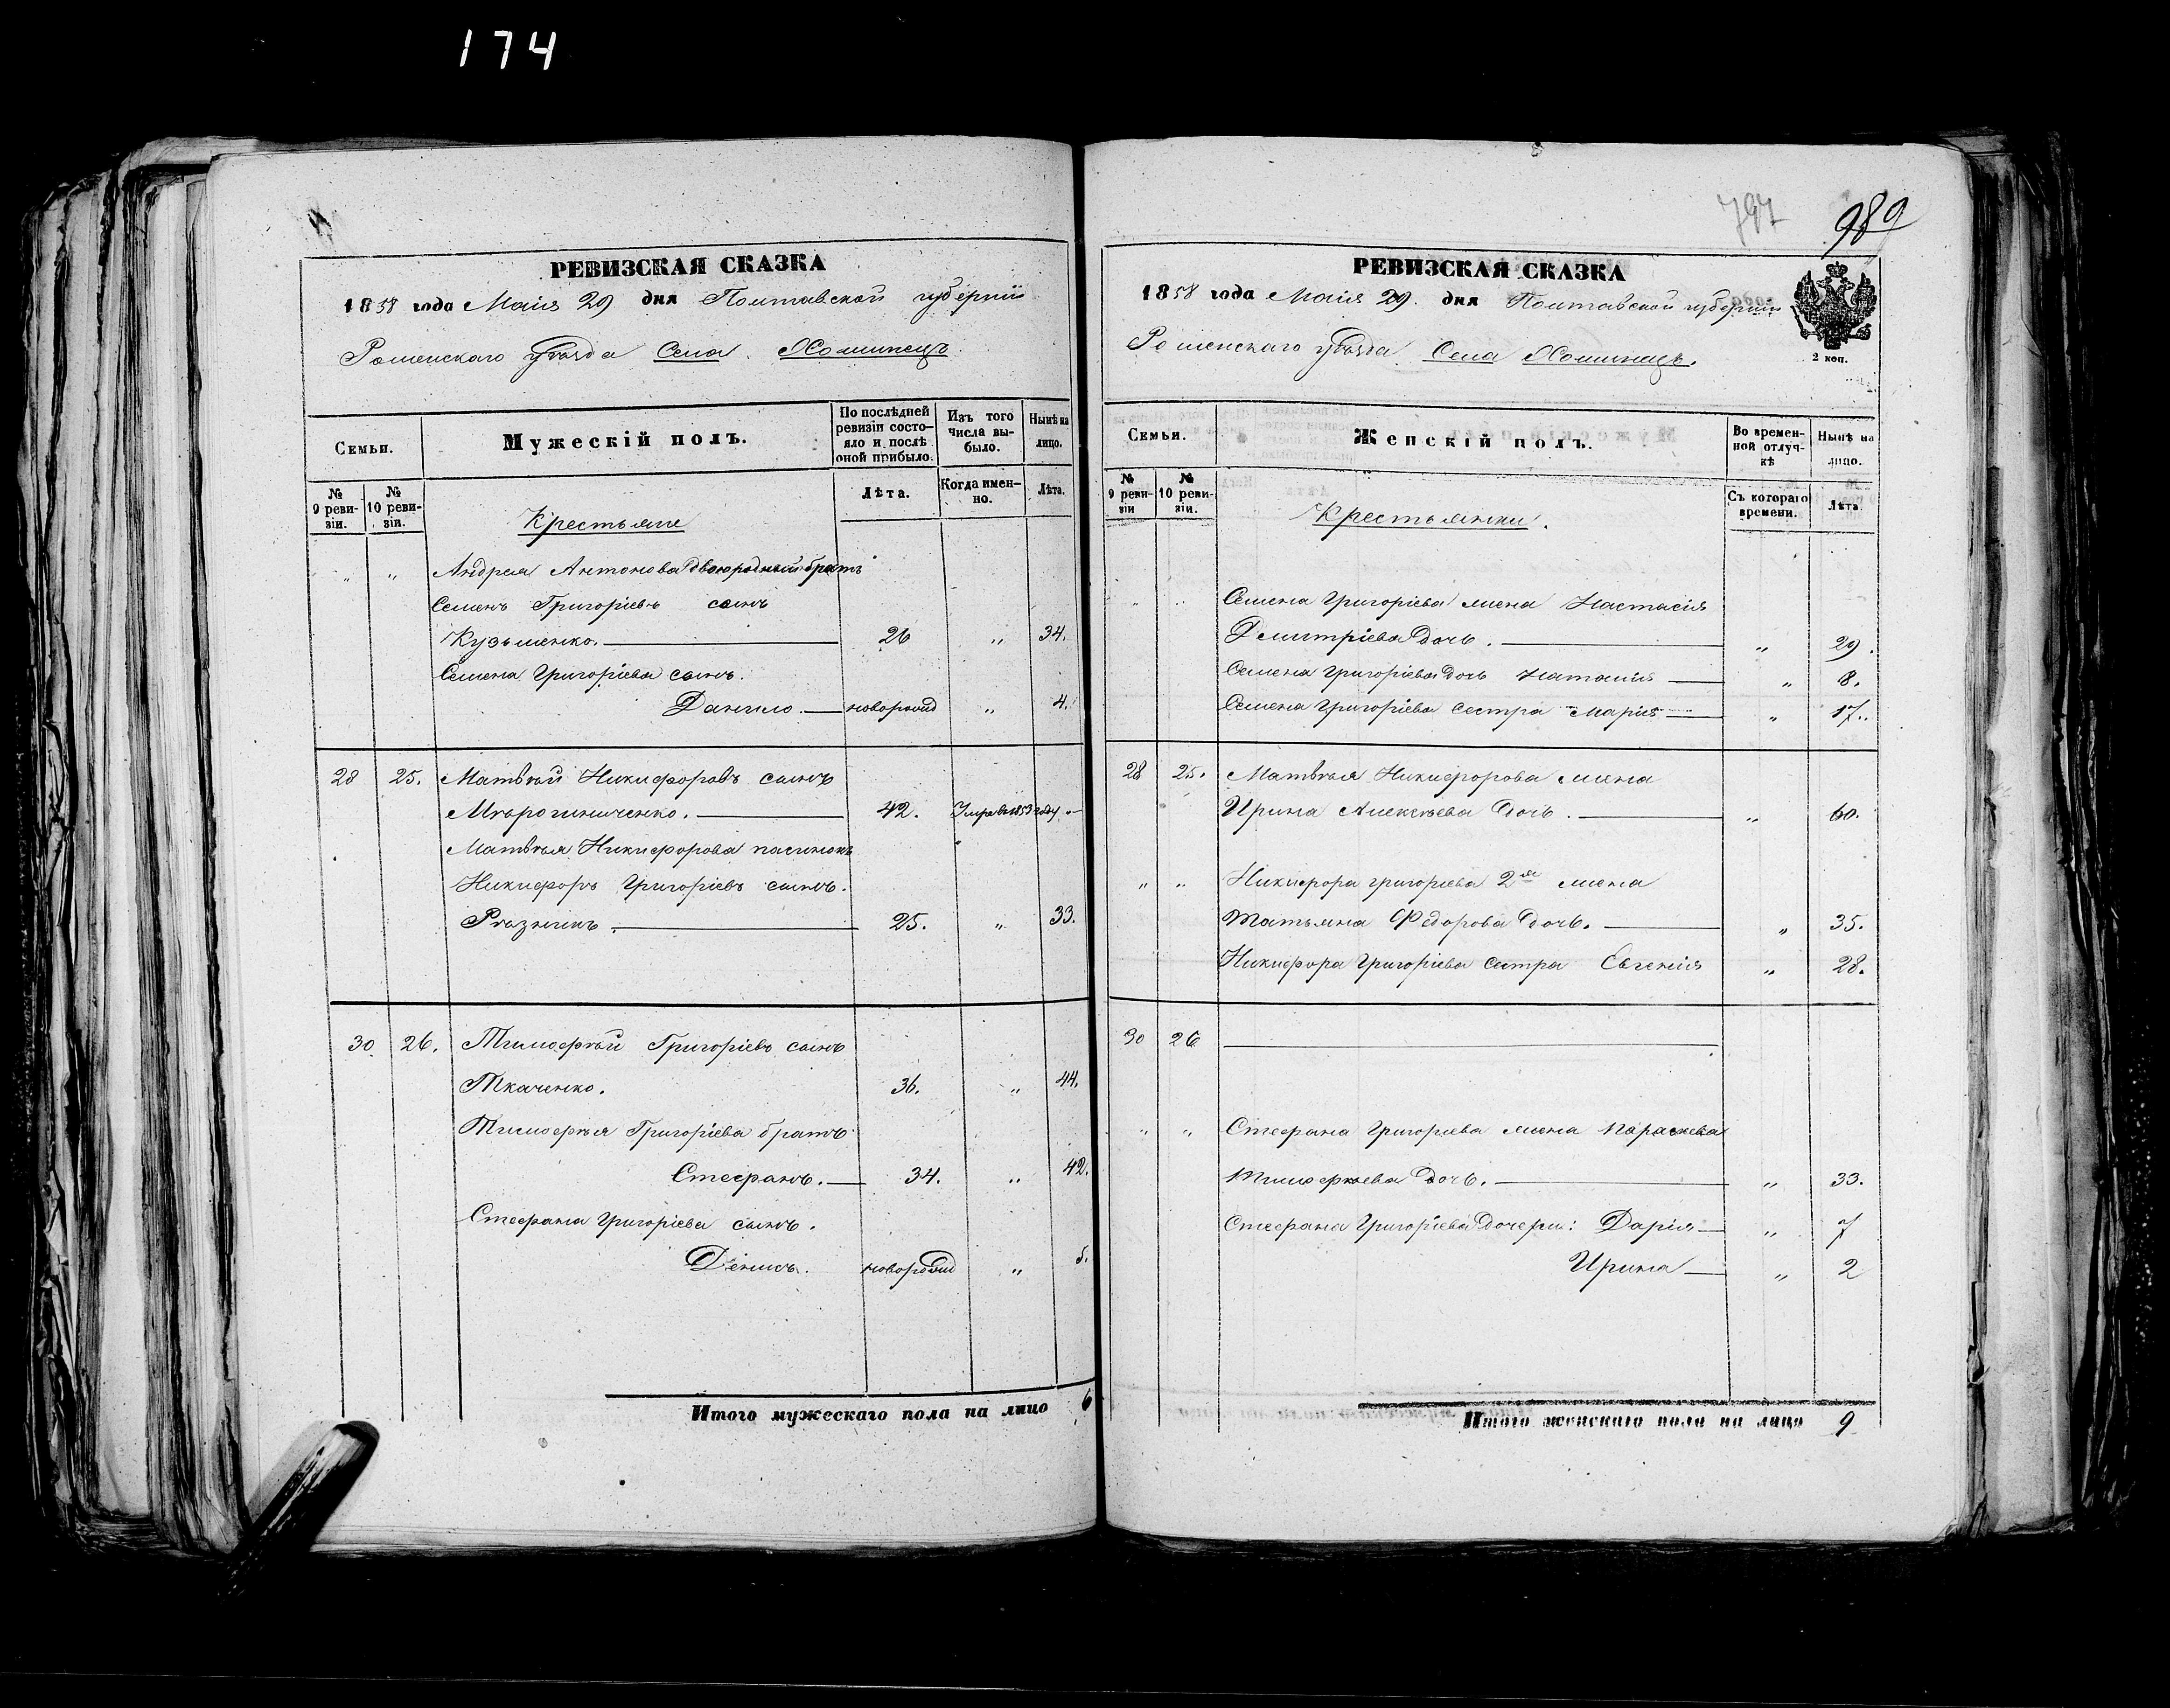 174
РЕВИЗСКАЯ СКАЗКА
1858 года Маія 29 дня Полтавской губерніи
Роменскаго уѣзда Села Хоминецъ.
Семьи.
Мужескій полъ.
По послѣдней ревизіи состояло и послѣ оной прибыло.
Изъ того числа выбыло.
Нынѣ на лицо.
№ 9 ревизіи.
№ 10 ревизіи.
Лѣта.
Когда именно.
Лѣта.
Крестьяне
" " Андрея Антонова двоюродный братъ
Семенъ Григорьевъ сынъ
Кузьменко. 26 " 34.
Семена Григорiева сынъ.
Данило. новорожд " 4.
28 25. Матвѣй Никифоровъ сынъ
42. Умре въ 1853 году "
Матвѣя Никифорова пасинокъ
Никифоръ Григоріевъ сынъ.
Рѣзникъ. 25. " 33.
30 26. Тимофѣй Григоріевъ сынъ
Ткаченко. 36. " 44.
Тимофѣя Григоріева братъ
Стефанъ. 34. " 42.
Стефана Григоріева сынъ.
Денисъ. новорожд "
Итого мужескаго пола на лицо 6
797
989
РЕВИЗСКАЯ СКАЗКА
1858 года Маія 29. дня Полтавской губерніи
Роменскаго уѣзда Села Хоминецъ.
2 коп.
Семьи.
Женскій полъ.
Во временной отлучкѣ
Нынѣ на лицо.
№ 9 ревизіи
№ 10 ревизіи.
Съ котораго времени.
Лѣта.
Крестьянки.
" " Семена Григоріева жена Настасія
Дмитріева дочь. " 29.
Семена Григоріева дочь Наталія " 8.
Семена Григоріева сестра Марія " 17.
28 25. Матвѣя Никифорова жена
Ирина Алексѣева дочь. " 60.
" " Никифора Григорiева 2я жена
Татьяна Федорова дочь. " 35.
Никифора Григоріева сестра Евгенія " 28.
30 26
" " Стефана Григорiева жена Параскева
Тимофѣева дочь. " 33.
Стефана Григоріева дочери: Дарія " 7
Ирина " 2
Итого женскаго пола на лицо 9